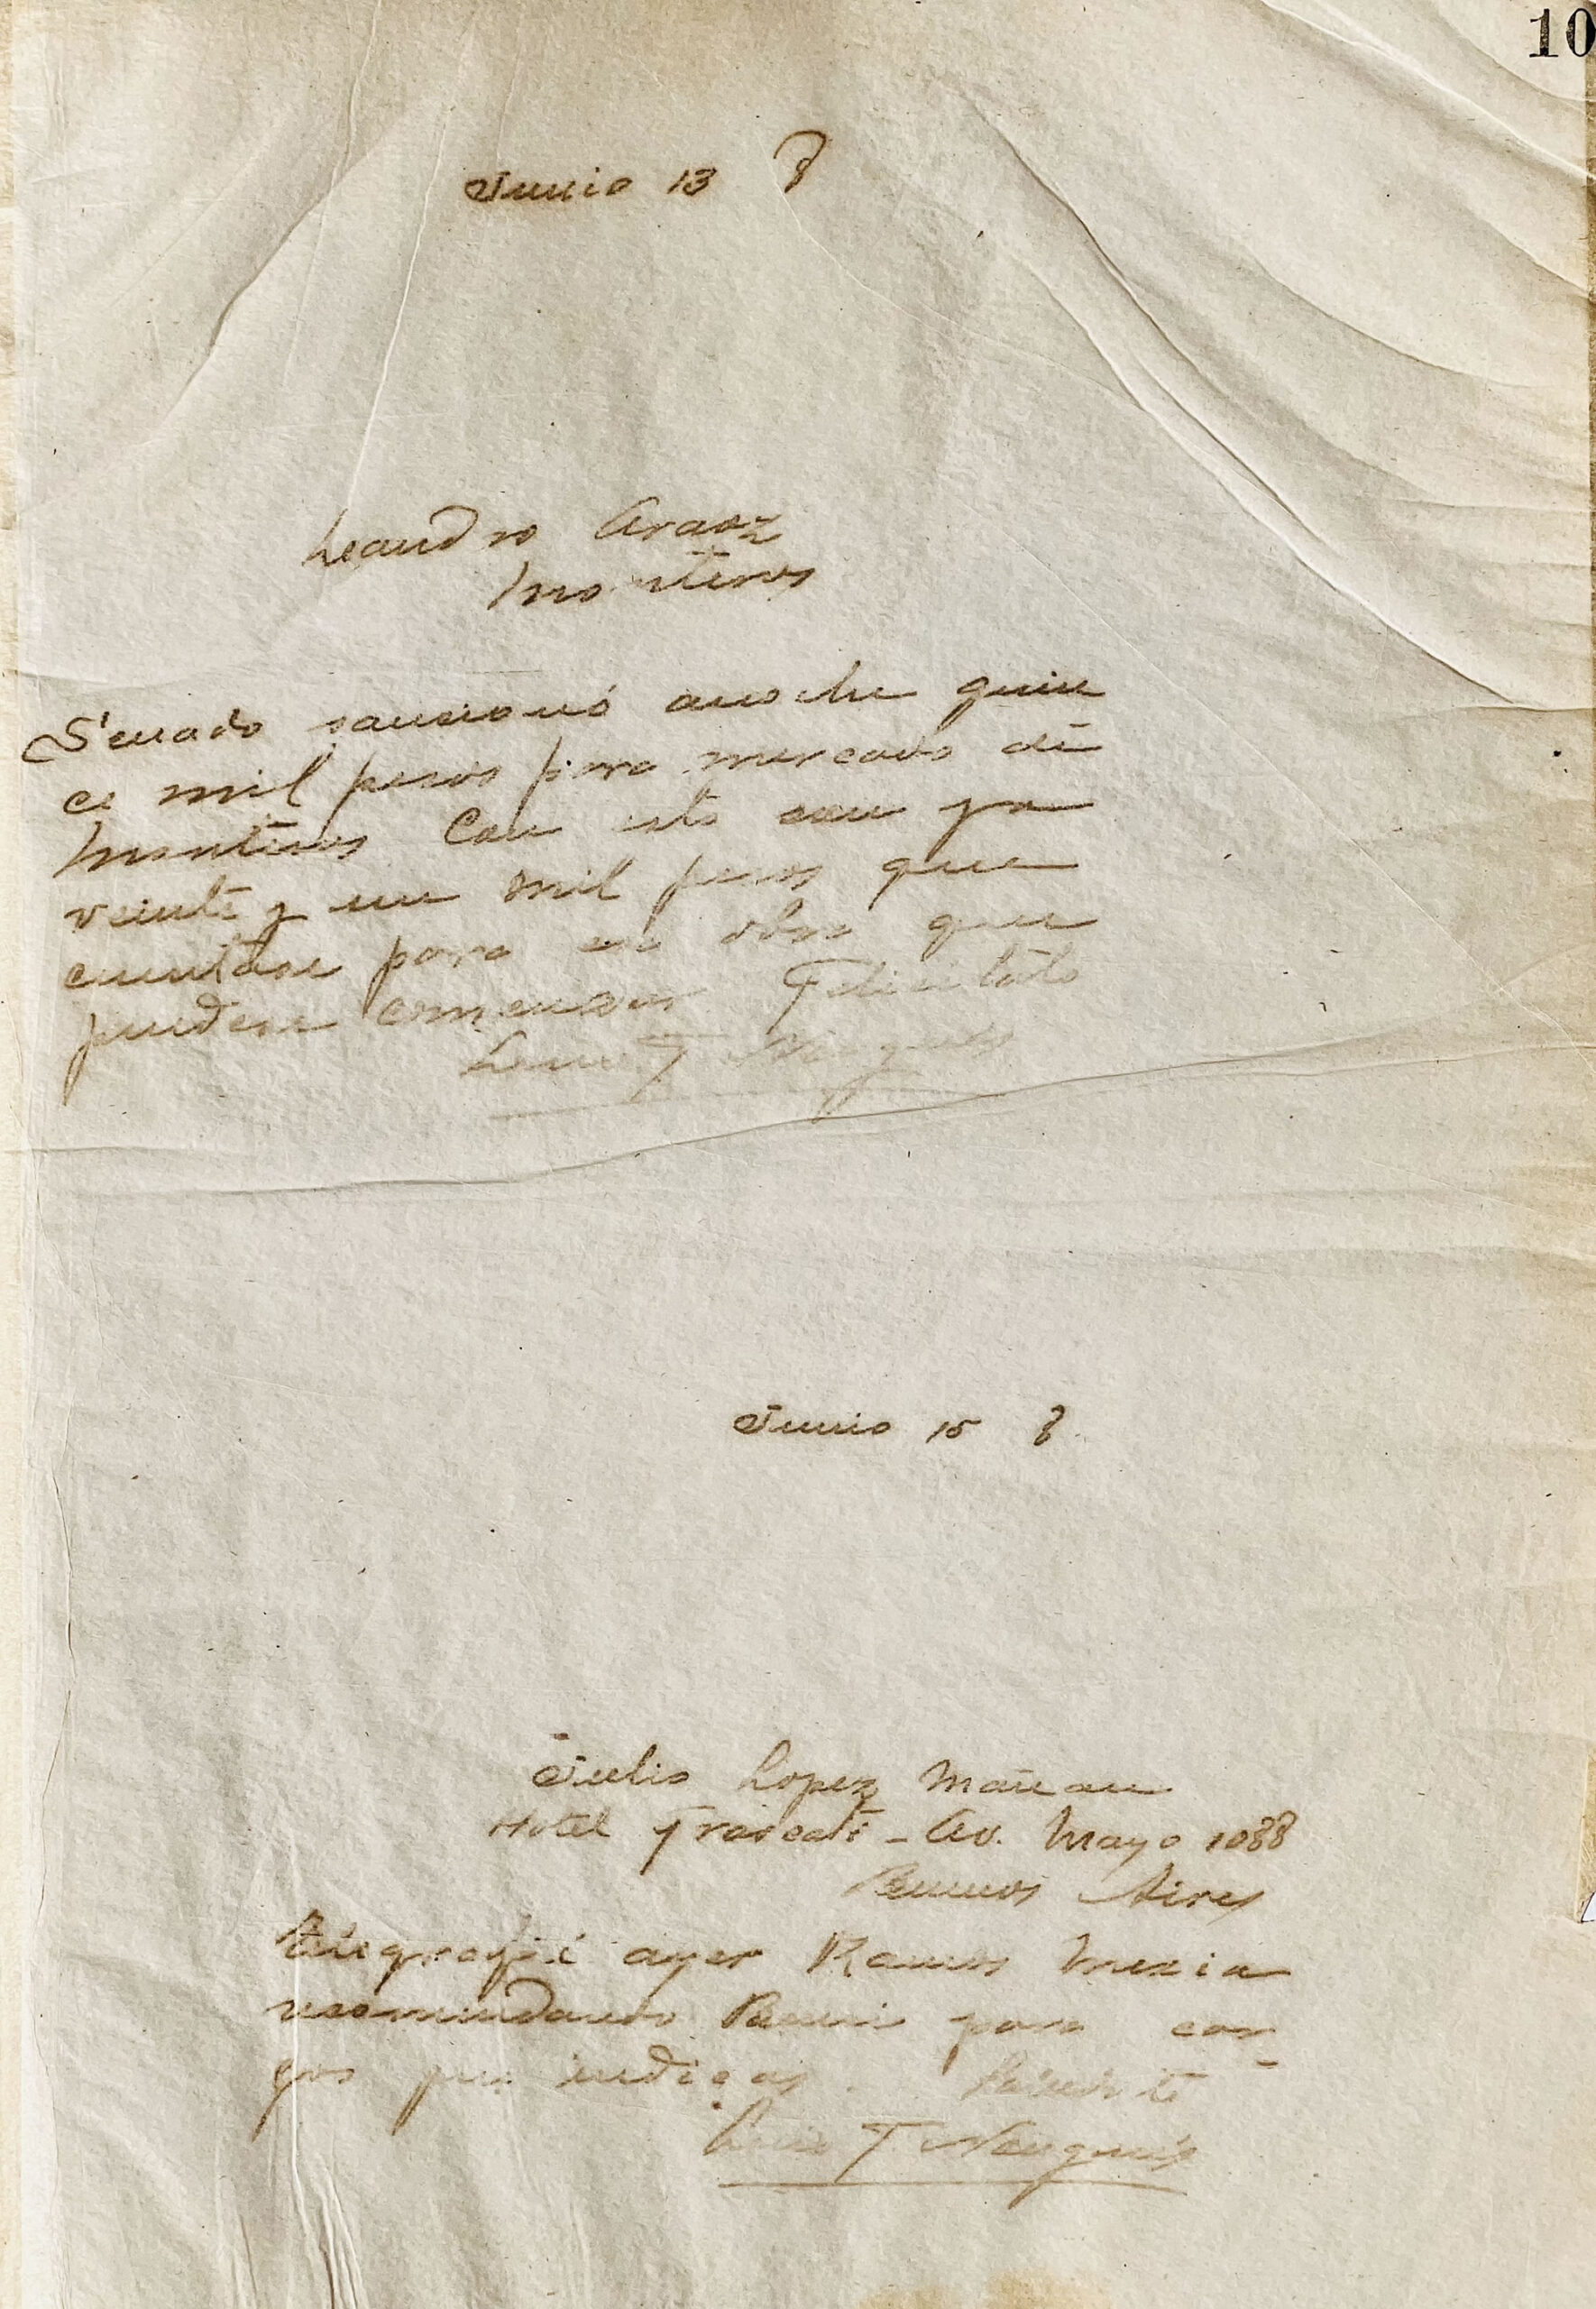 10
Junio 13 8
Leandro Araoz
Monteros
Senado sancionó anoche quin
ce mil pesos para mercado de
Monteros Con esto son ya
veinte y un mil pesos que
cuentase para esa obra que
puedese comenzar Felicitolo
Luis F Nougués
Junio 15 8
Julio Lopez Mañan
Hotel Frascati - Av. Mayo 1088
Buenos Aires
Telegrafié ayer Ramos Mexia
recomendando para car-
gos que indicas. Salúdote
Luis F Nougués